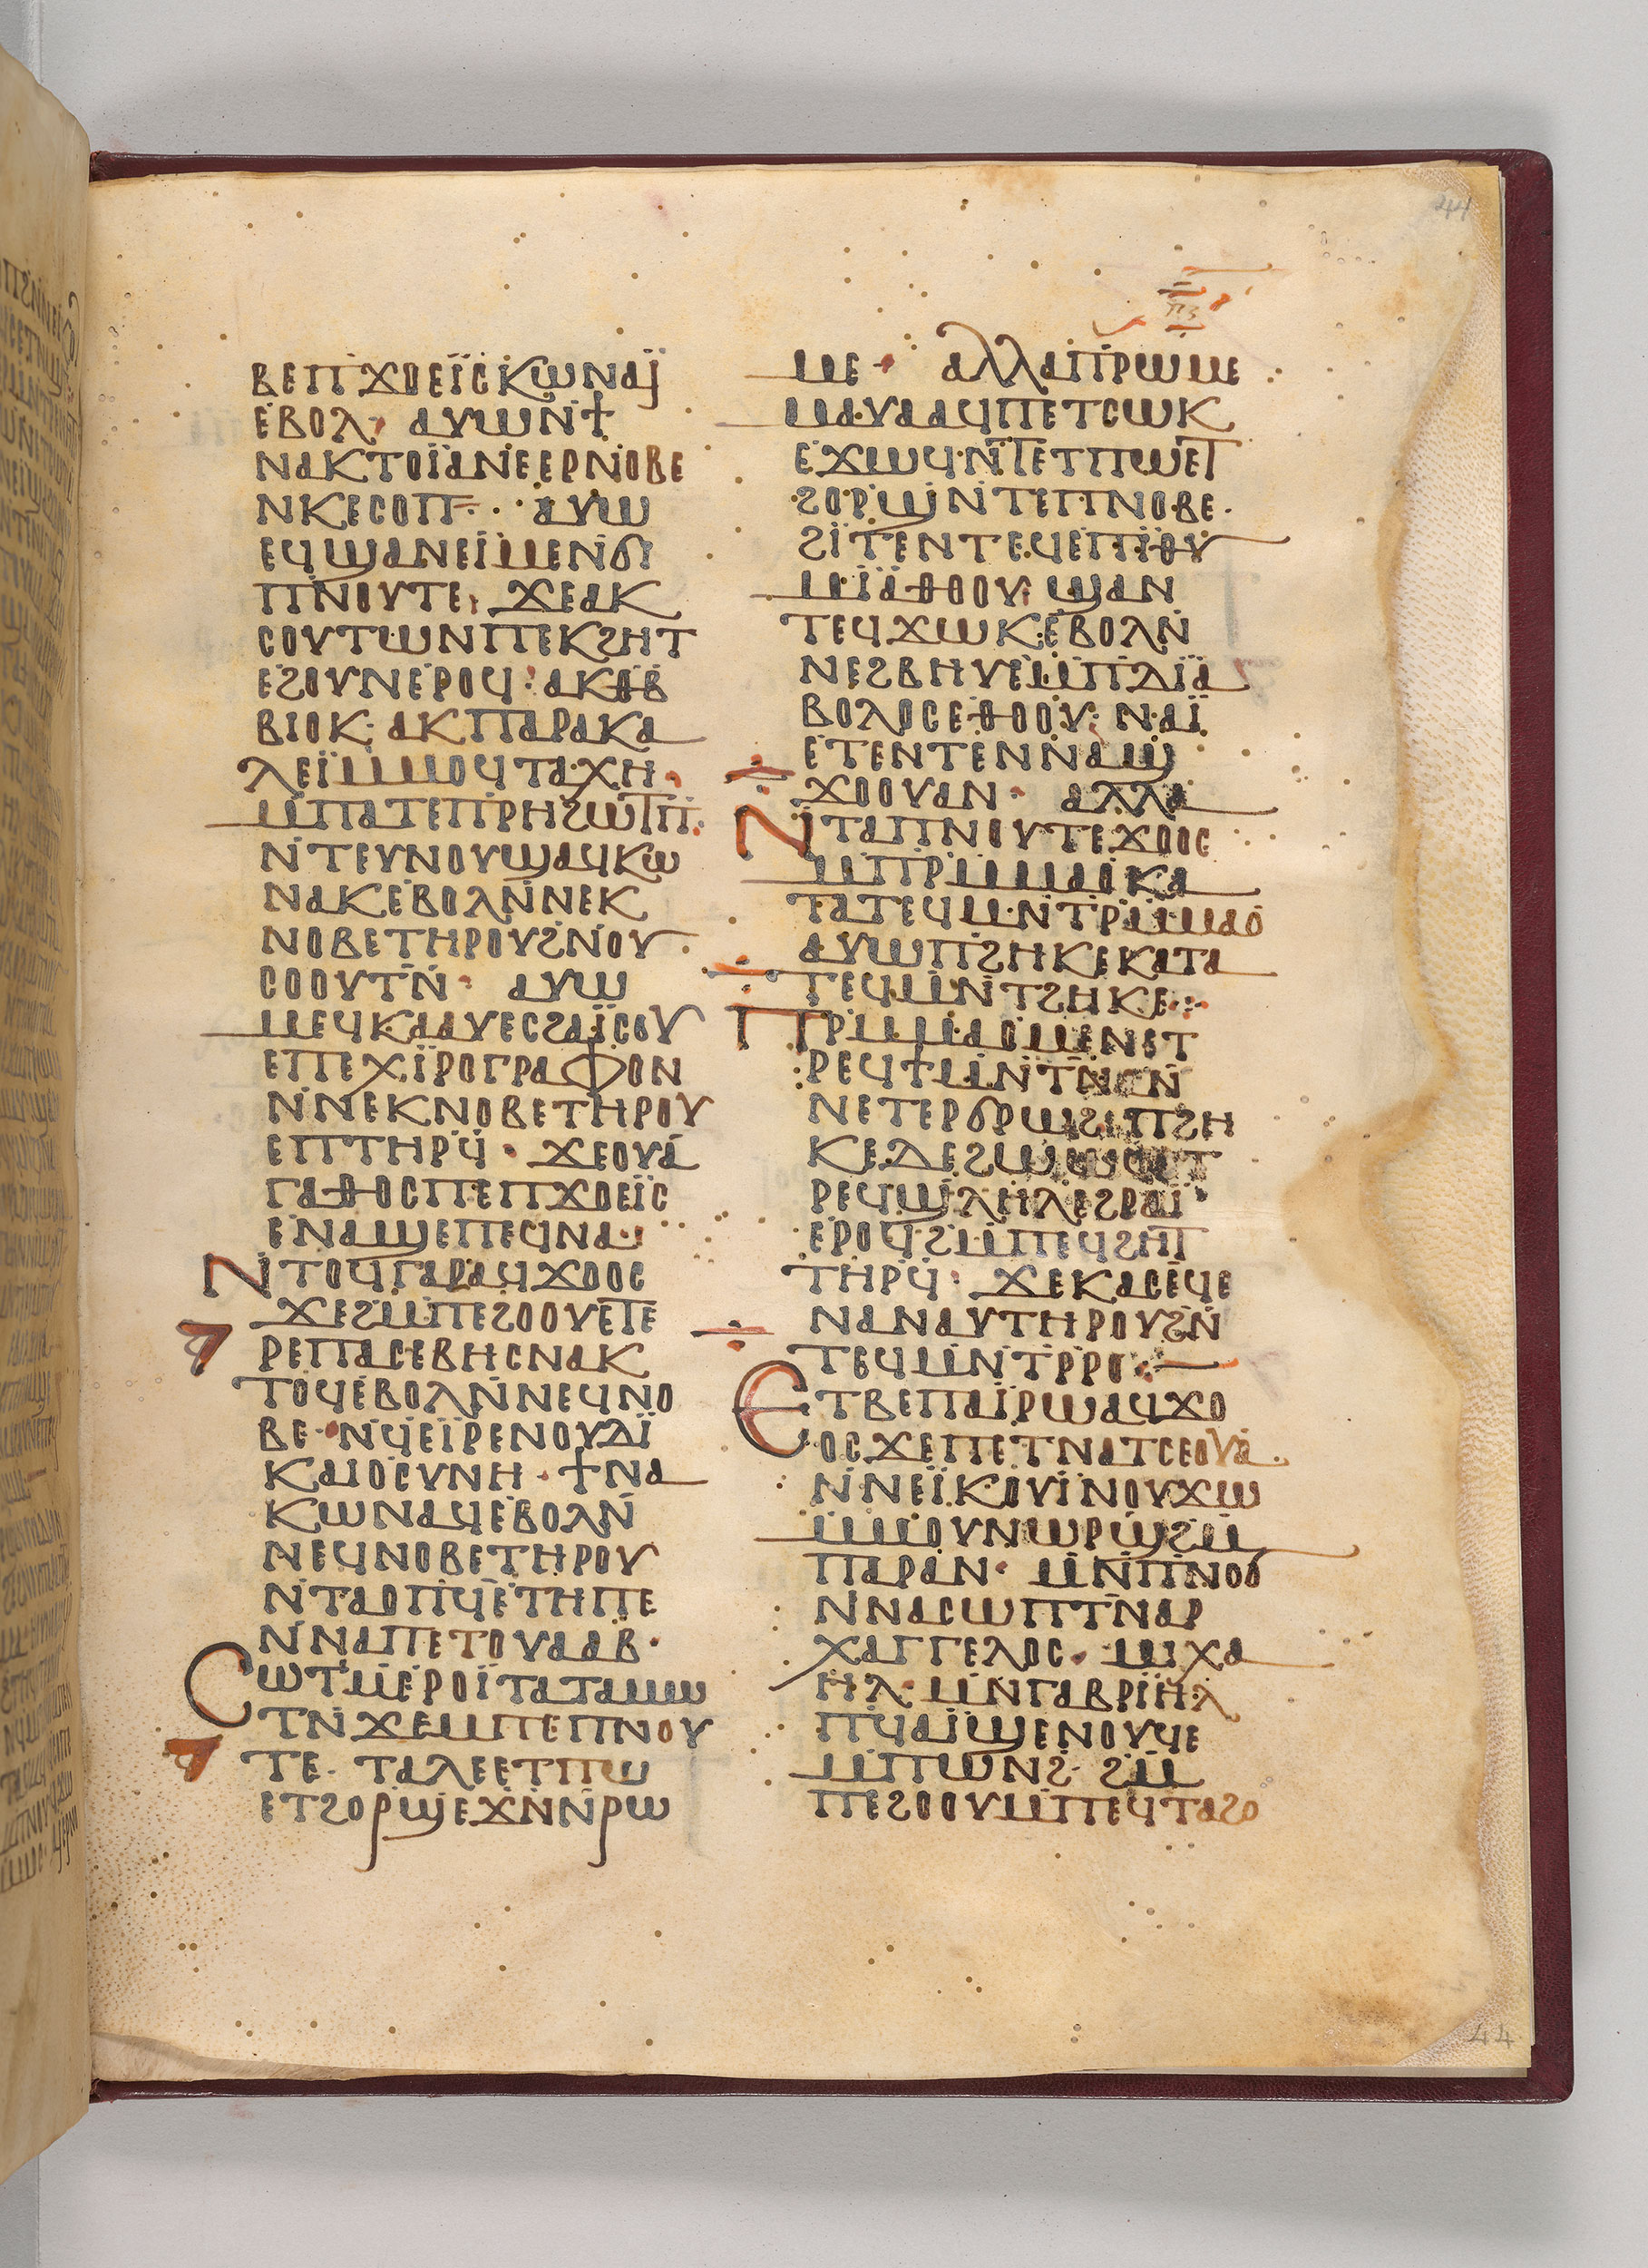 44
ⲡⲍ
ⲃⲉⲡϫⲟⲉⲓ̈ⲥⲕⲱⲛⲁⲓ̈
ⲉⲃⲟⲗ· ⲁⲩⲱⲛϯ
ⲛⲁⲕⲧⲟⲓ̈ⲁⲛⲉⲉⲣⲛⲟⲃⲉ
ⲛⲕⲉⲥⲟⲡ· ⲁⲩⲱ
ⲉϥϣⲁⲛⲉⲓⲙⲉⲛϭⲓ
ⲡⲛⲟⲩⲧⲉ· ϫⲉⲁⲕ
ⲥⲟⲩⲧⲱⲛⲡⲉⲕϩⲏⲧ
ⲉϩⲟⲩⲛⲉⲣⲟϥ· ⲁⲕⲑⲃ
ⲃⲓⲟⲕ· ⲁⲕⲡⲁⲣⲁⲕⲁ
ⲗⲉⲓ̈ⲙⲙⲟϥⲧⲁⲭⲏ·
ⲙⲡⲁⲧⲉⲡⲣⲏϩⲱⲧⲡ·
ⲛⲧⲉⲩⲛⲟⲩϣⲁϥⲕⲱ
ⲛⲁⲕⲉⲃⲟⲗⲛⲛⲉⲕ
ⲛⲟⲃⲉⲧⲏⲣⲟⲩϩⲛⲟⲩ
ⲥⲟⲟⲩⲧⲛ· ⲁⲩⲱ
ⲙⲉϥⲕⲁⲁⲩⲉⲥϩⲁⲓ̈ⲥⲟⲩ
ⲉⲡⲉⲭⲓ̈ⲣⲟⲅⲣⲁⲫⲟⲛ
ⲛⲛⲉⲕⲛⲟⲃⲉⲧⲏⲣⲟⲩ
ⲉⲡⲧⲏⲣϥ· ϫⲉⲟⲩⲁ
ⲅⲁⲑⲟⲥⲡⲉⲡϫⲟⲉⲓ̈ⲥ
ⲉⲛⲁϣⲉⲡⲉϥⲛⲁ·
ⲛⲧⲟϥⲅⲁⲣⲁϥϫⲟⲟⲥ
ϫⲉϩⲙⲡⲉϩⲟⲟⲩⲉⲧⲉ
ⲣⲉⲡⲁⲥⲉⲃⲏⲥⲛⲁⲕ
ⲧⲟϥⲉⲃⲟⲗⲛⲛⲉϥⲛⲟ
ⲃⲉ·ⲛϥⲉⲓ̈ⲣⲉⲛⲟⲩⲇⲓ̈
ⲕⲁⲓⲟⲥⲩⲛⲏ· ϯⲛⲁ
ⲕⲱⲛⲁϥⲉⲃⲟⲗⲛ
ⲛⲉϥⲛⲟⲃⲉⲧⲏⲣⲟⲩ
ⲛⲧⲁⲟⲡϥⲉⲧⲏⲡⲉ
ⲛⲛⲁⲡⲉⲧⲟⲩⲁⲁⲃ·
ⲥⲱⲧⲙⲉⲣⲟⲓ̈ⲧⲁⲧⲁⲙⲱ
ⲧⲛϫⲉⲙⲡⲉⲡⲛⲟⲩ
ⲧⲉ· ⲧⲁⲗⲉⲉⲧⲡⲱ
ⲉⲧϩⲟⲣϣⲉϫⲛⲛⲣⲱ
ⲙⲉ· ⲁⲗⲗⲁⲡⲣⲱⲙⲉ
ⲙⲁⲩⲁⲁϥⲡⲉⲧⲥⲱⲕ
ⲉϫⲱϥ·ⲛⲧⲉⲧⲡⲱⲉⲧ
ϩⲟⲣϣⲛⲧⲉⲡⲛⲟⲃⲉ·
ϩⲓ̈ⲧⲉⲛⲧⲉϥⲉⲡⲓ̈ⲑⲩ
ⲙⲓ̈ⲁⲑⲟⲟⲩ· ϣⲁⲛ
ⲧⲉϥϫⲱⲕⲉⲃⲟⲗⲛ
ⲛⲉϩⲃⲏⲩⲉⲙⲡⲇⲓ̈ⲁ
ⲃⲟⲗⲟⲥⲉⲑⲟⲟⲩ· ⲛⲁⲓ̈
ⲉⲧⲉⲛⲧⲉⲛⲛⲁϣ
ϫⲟⲟⲩⲁⲛ· ⲁⲗⲗⲁ
ⲛⲧⲁⲡⲛⲟⲩⲧⲉϫⲟⲟⲥ
ⲙⲡⲣⲙⲙⲁⲟⲕⲁ
ⲧⲁⲧⲉϥⲙⲛⲧⲣⲙⲙⲁⲟ
ⲁⲩⲱⲡϩⲏⲕⲉⲕⲁⲧⲁ
ⲧⲉϥⲙⲛⲧϩⲏⲕⲉ·
ⲡⲣⲙⲙⲁⲟⲙⲉⲛⲉⲧ
ⲣⲉϥϯⲙⲛⲧⲛⲁⲛ
ⲛⲉⲧⲉⲣϭⲣⲱϩⲡϩⲏ
ⲕⲉⲇⲉϩⲱⲱϥⲉⲧ
ⲣⲉϥϣⲗⲏⲗⲉϩⲣⲁⲓ̈
ⲉⲣⲟϥ·ϩⲙⲡⲉϥϩⲏⲧ
ⲧⲏⲣϥ· ϫⲉⲕⲁⲥⲉϥⲉ
ⲛⲁⲛⲁⲩⲧⲏⲣⲟⲩϩⲛ
ⲧⲉϥⲙⲛⲧⲣⲣⲟ·
ⲉⲧⲃⲉⲡⲁⲓ̈ⲣⲱⲁϥϫⲟ
ⲟⲥϫⲉⲡⲉⲧⲛⲁⲧⲥⲉⲟⲩⲁ
ⲛⲛⲉⲓ̈ⲕⲟⲩⲓ̈ⲛⲟⲩϫⲱ
ⲙⲙⲟⲩⲛⲱⲣϣϩⲙ
ⲡⲁⲣⲁⲛ· ⲙⲛⲡⲛⲟϭ
ⲛⲛⲁⲥⲱⲡⲧⲛⲁⲣ
ⲭⲁⲅⲅⲉⲗⲟⲥ· ⲙⲓⲭⲁ
ⲏⲗ ⲙⲛⲅⲁⲃⲣⲓ̈ⲏⲗ
ⲡϥⲁⲓ̈ϣⲉⲛⲟⲩϥⲉ
ⲙⲡⲱⲛϩ· ϩⲙ
ⲡⲉϩⲟⲟⲩⲙⲡⲉϥⲧⲁϩⲟ
44